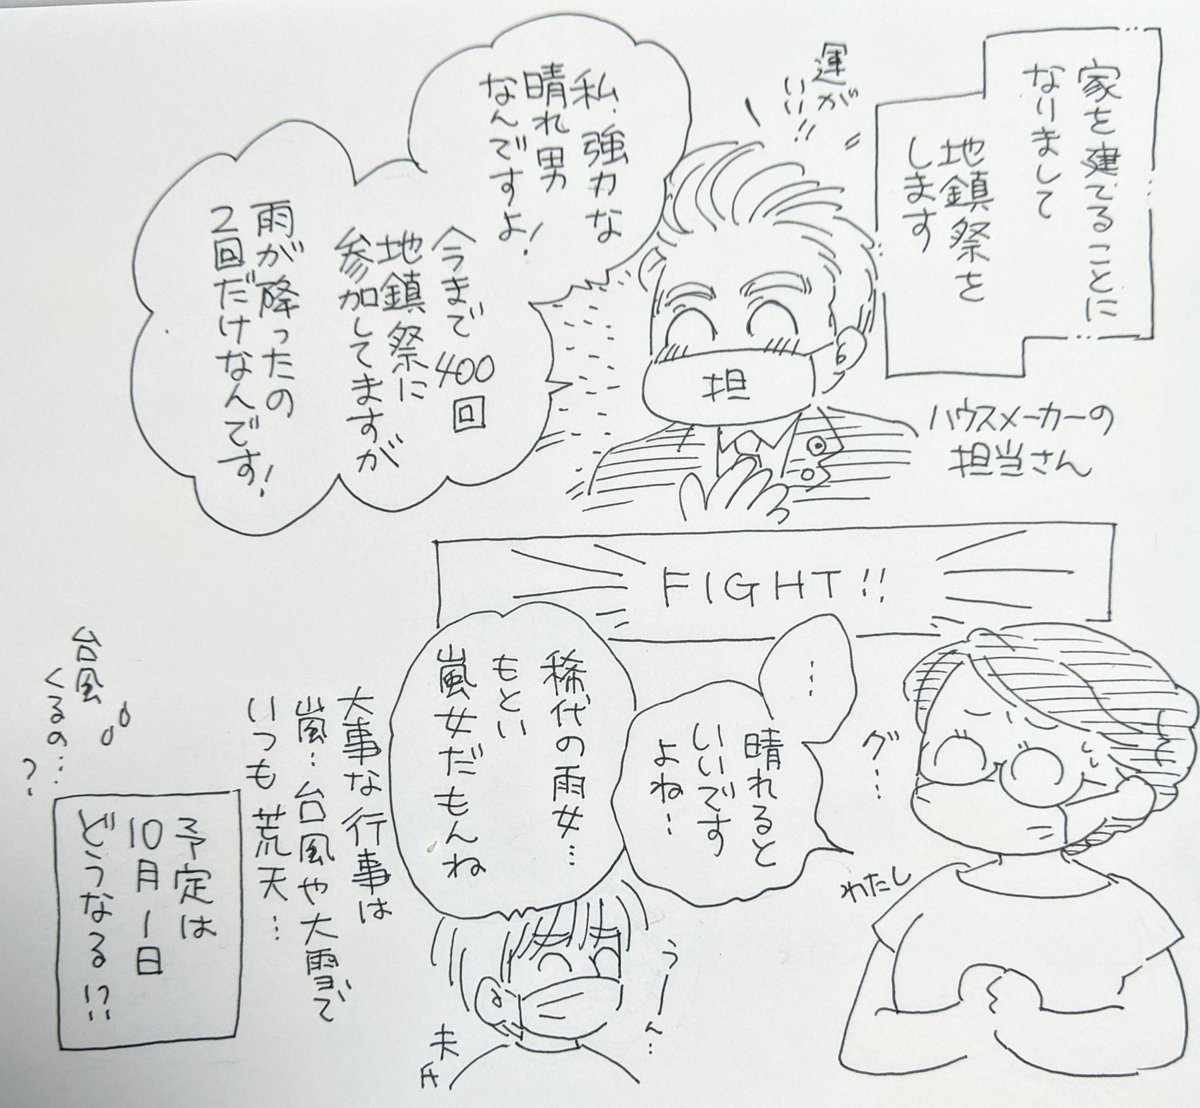 家を建てることに
なりまして
地鎮祭を
します
ハウスメーカーの
担当さん
運が
いい!!
担
私、強力な
晴れ男
なんですよ!
今まで400回
地鎮祭に
参加してますが
雨が降ったの
2回だけなんです!
FIGHT!!
グ…
わたし
…
晴れると
いいです
よね…
稀代の雨女…
もとい
嵐女だもんね
うーん…
夫氏
大事な行事は
嵐…台風や大雪で
いつも荒天…
台風
くるの…?
予定は
10月1日
どうなる!?